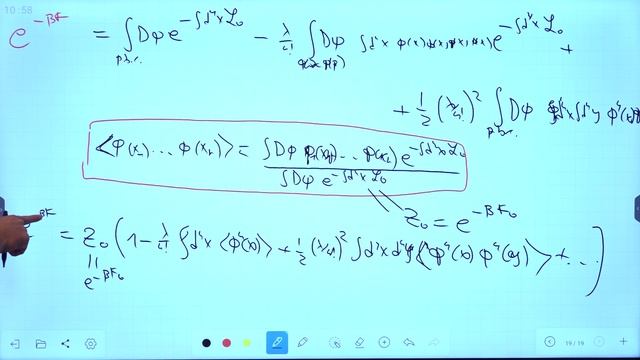 10:58
e^{-βF} = ∫_{p.b.c.} Dφ e^{-∫d⁴x ℒ₀} - λ/4! ∫ Dφ ∫d⁴x φ(x)φ(x)φ(x)φ(x) e^{-∫d⁴x ℒ₀} +
+ 1/2 (λ/4!)² ∫_{p.b.c.} Dφ ∫d⁴x∫d⁴y φ⁴(x)
⟨φ(x₁)...φ(x_k)⟩ = ∫Dφ φ(x₁)...φ(x_k) e^{-∫d⁴x ℒ₀} / ∫Dφ e^{-∫d⁴x ℒ₀}
Z₀ = e^{-βF₀}
βF = Z₀ (1 - λ/4! ∫d⁴x ⟨φ⁴(x)⟩ + 1/2 (λ/4!)² ∫d⁴x d⁴y ⟨φ⁴(x) φ⁴(y)⟩ + ...)
||
e^{-βF₀}
19/19